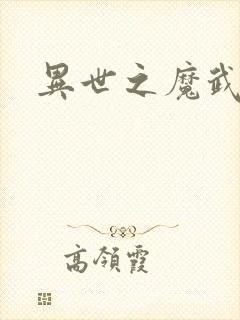 異世之魔武
高領霞